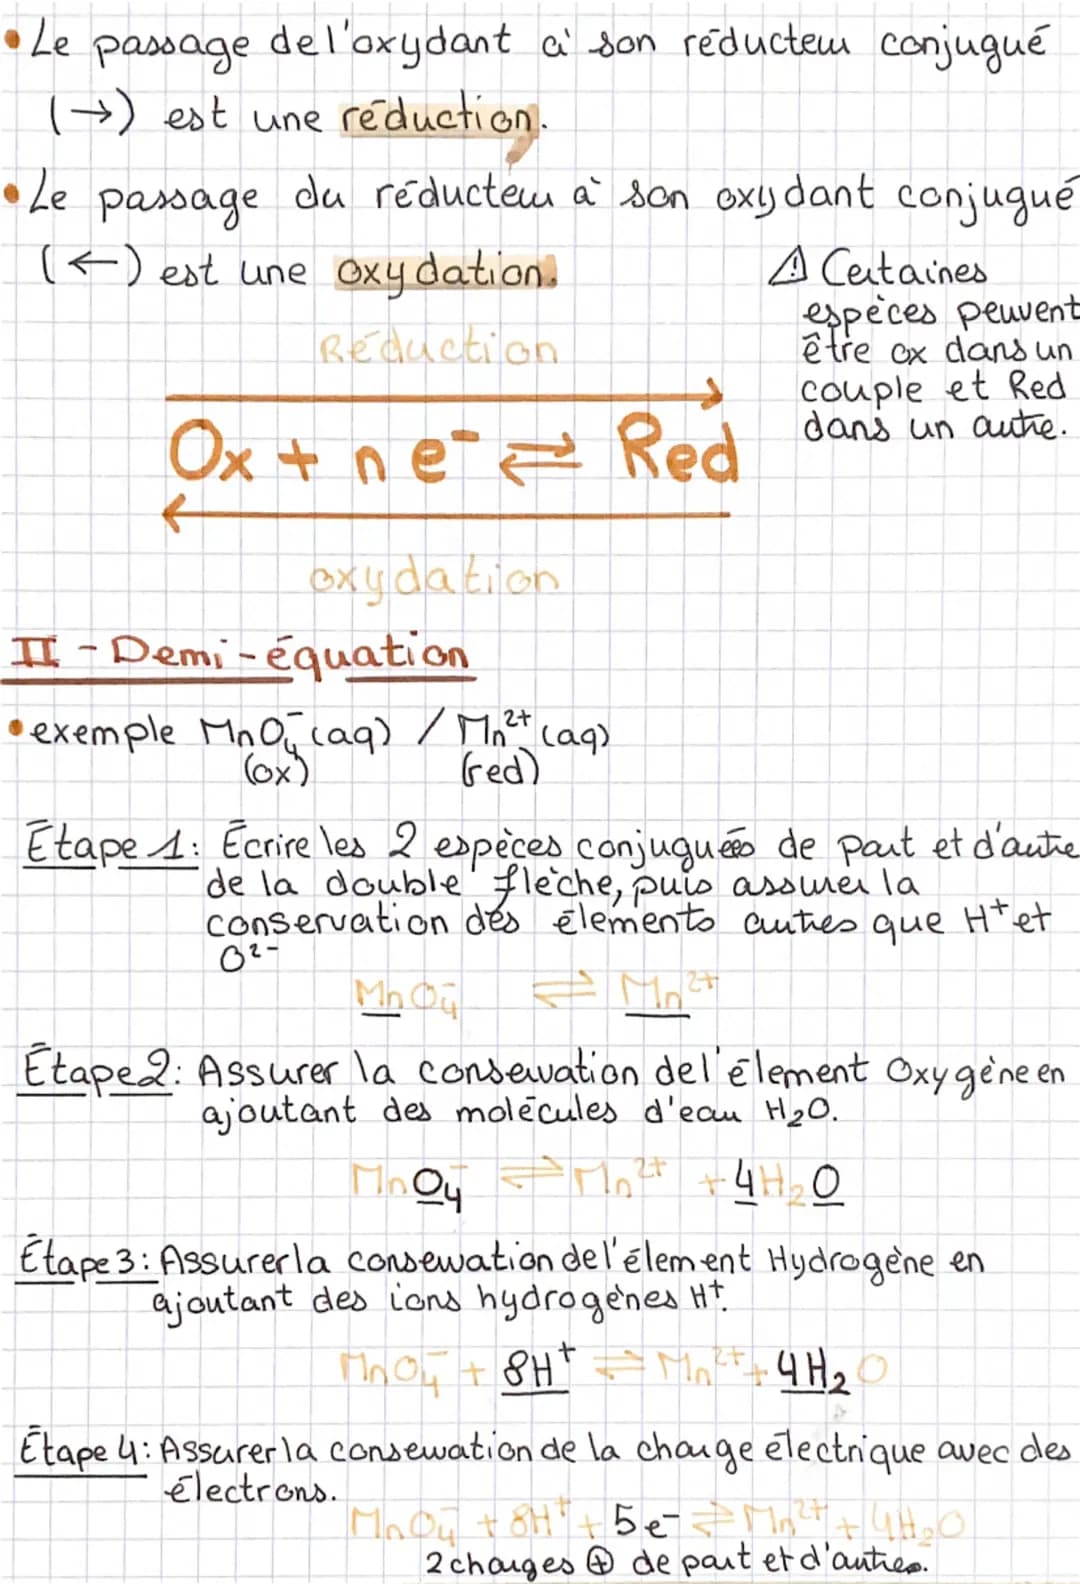 • Le passage de l'oxydant à son réducteur conjugué
(→) est une réduction.
• Le passage du réducteur à son oxydant conjugué
(←) est une oxydation.
⚠ Certaines
espèces peuvent
être ox dans un
couple et Red
dans un autre.
Réduction
Ox + n e⁻ ⇌ Red
oxydation
II - Demi-équation
• exemple MnO₄⁻(aq) / Mn²⁺(aq)
(ox) (red)
Étape 1: Écrire les 2 espèces conjuguées de part et d'autre
de la double flèche, puis assurer la
conservation des éléments autres que H⁺ et
O²⁻
MnO₄⁻ ⇌ Mn²⁺
Étape 2: Assurer la conservation de l'élement Oxygène en
ajoutant des molécules d'eau H₂O.
MnO₄⁻ ⇌ Mn²⁺ + 4H₂O
Étape 3: Assurer la conservation de l'élement Hydrogène en
ajoutant des ions hydrogènes H⁺.
MnO₄⁻ + 8H⁺ ⇌ Mn²⁺ + 4H₂O
Étape 4: Assurer la conservation de la charge électrique avec des
électrons.
MnO₄⁻ + 8H⁺ + 5e⁻ ⇌ Mn²⁺ + 4H₂O
2 charges ⊕ de part et d'autres.